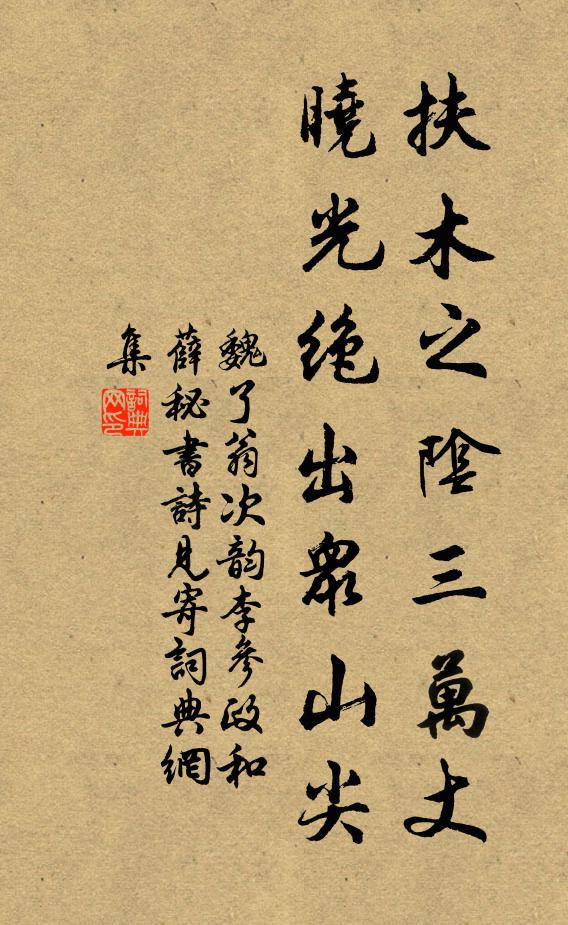 扶木之陰三萬丈
曉光絶出眾山尖
魏了翁次韵李參政和
薛秘書詩見寄詞典網
集
詞典
网印